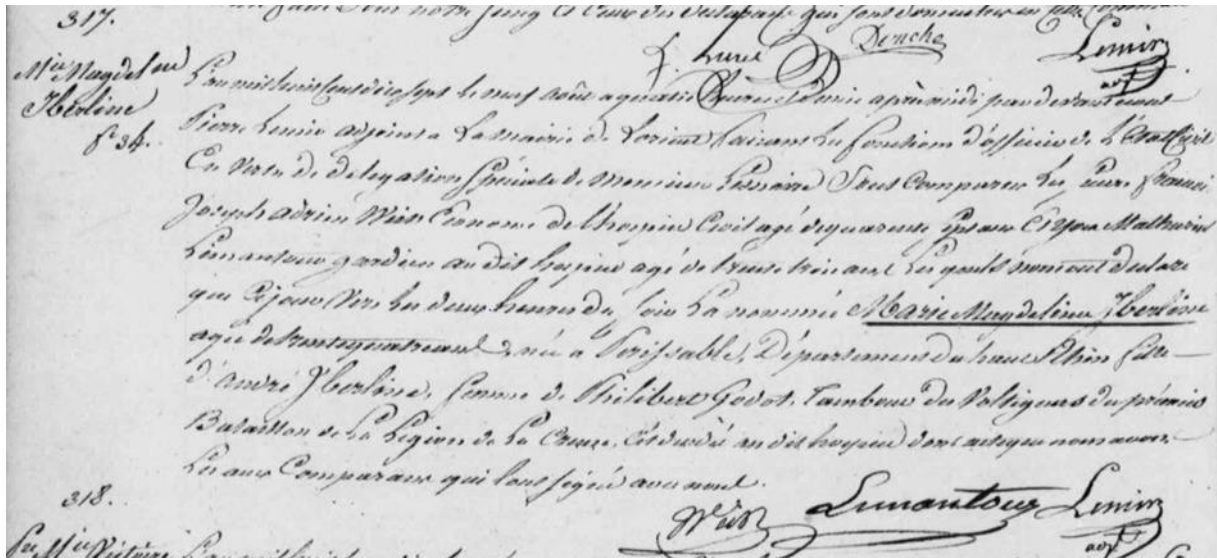 317.
L. Lurel Deniche Lemir
adjt
Mie Magdeleine
Iberline
fe 34.
L'an mil huit cent dix sept le neuf août à quatre heures et demie après midi par devant nous
Pierre Lemir adjoint à la mairie de Lorient faisant les fonctions d'officier de l'Etat Civil
En vertu de délégation spéciale de monsieur le maire Sont Comparus les Sieurs françois
Joseph adrien Econome de l'hospice Civil agé de quarante sept ans Et Yves Mathurin
Lemantour gardien au dit hospice agé de trente trois ans Lesquels nous ont déclaré
que Ce jour vers les deux heures du soir La nommée Marie Magdeleine Iberline
agée de trente quatre ans née à Département du haut Rhin fille
d'André Iberline, femme de Philibert Godot, Tambour du Voltigeurs du premier
Bataillon de la Légion de la Creuse, est décédée au dit hospice dont acte que nous avons
Lu aux Comparans qui l'ont signé avec nous.
Lemantour Lemir
adjt
318.
L'an mil huit cent dix sept